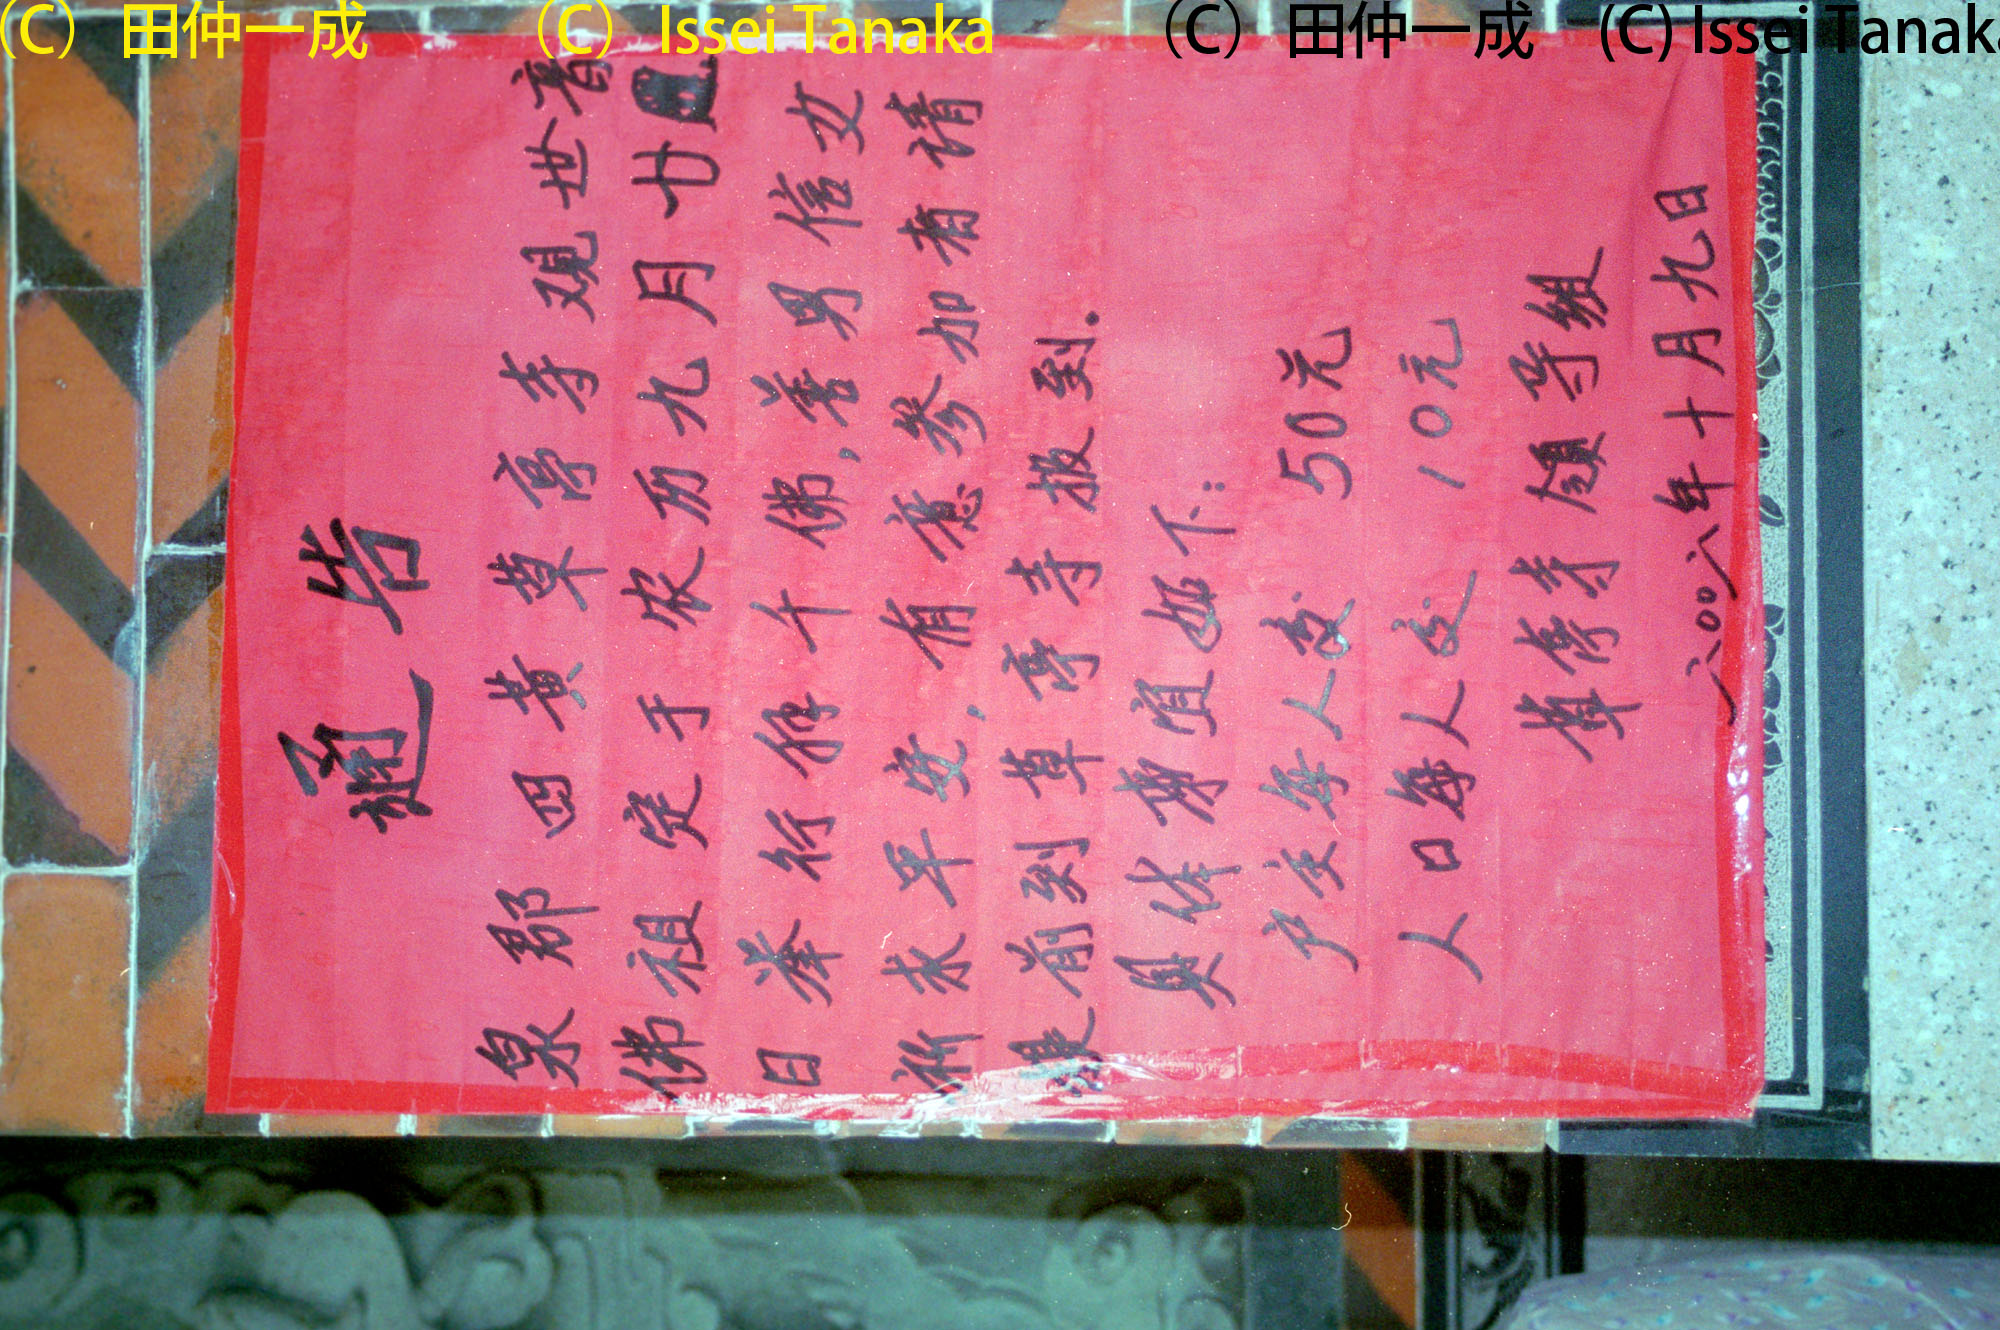 (C) 田仲一成 (C) Issei Tanaka (C) 田仲一成 (C) Issei Tanaka
通告
泉郡四黄草亭寺观世音
佛祖定于农历九月廿
日举行拜千佛，善男信女
祈求平安，有愿参加者请
提前到草亭寺报到。
具体 如下：
户主每人交 50元
人口每人交 10元
草亭寺领导组
二00八年十月九日